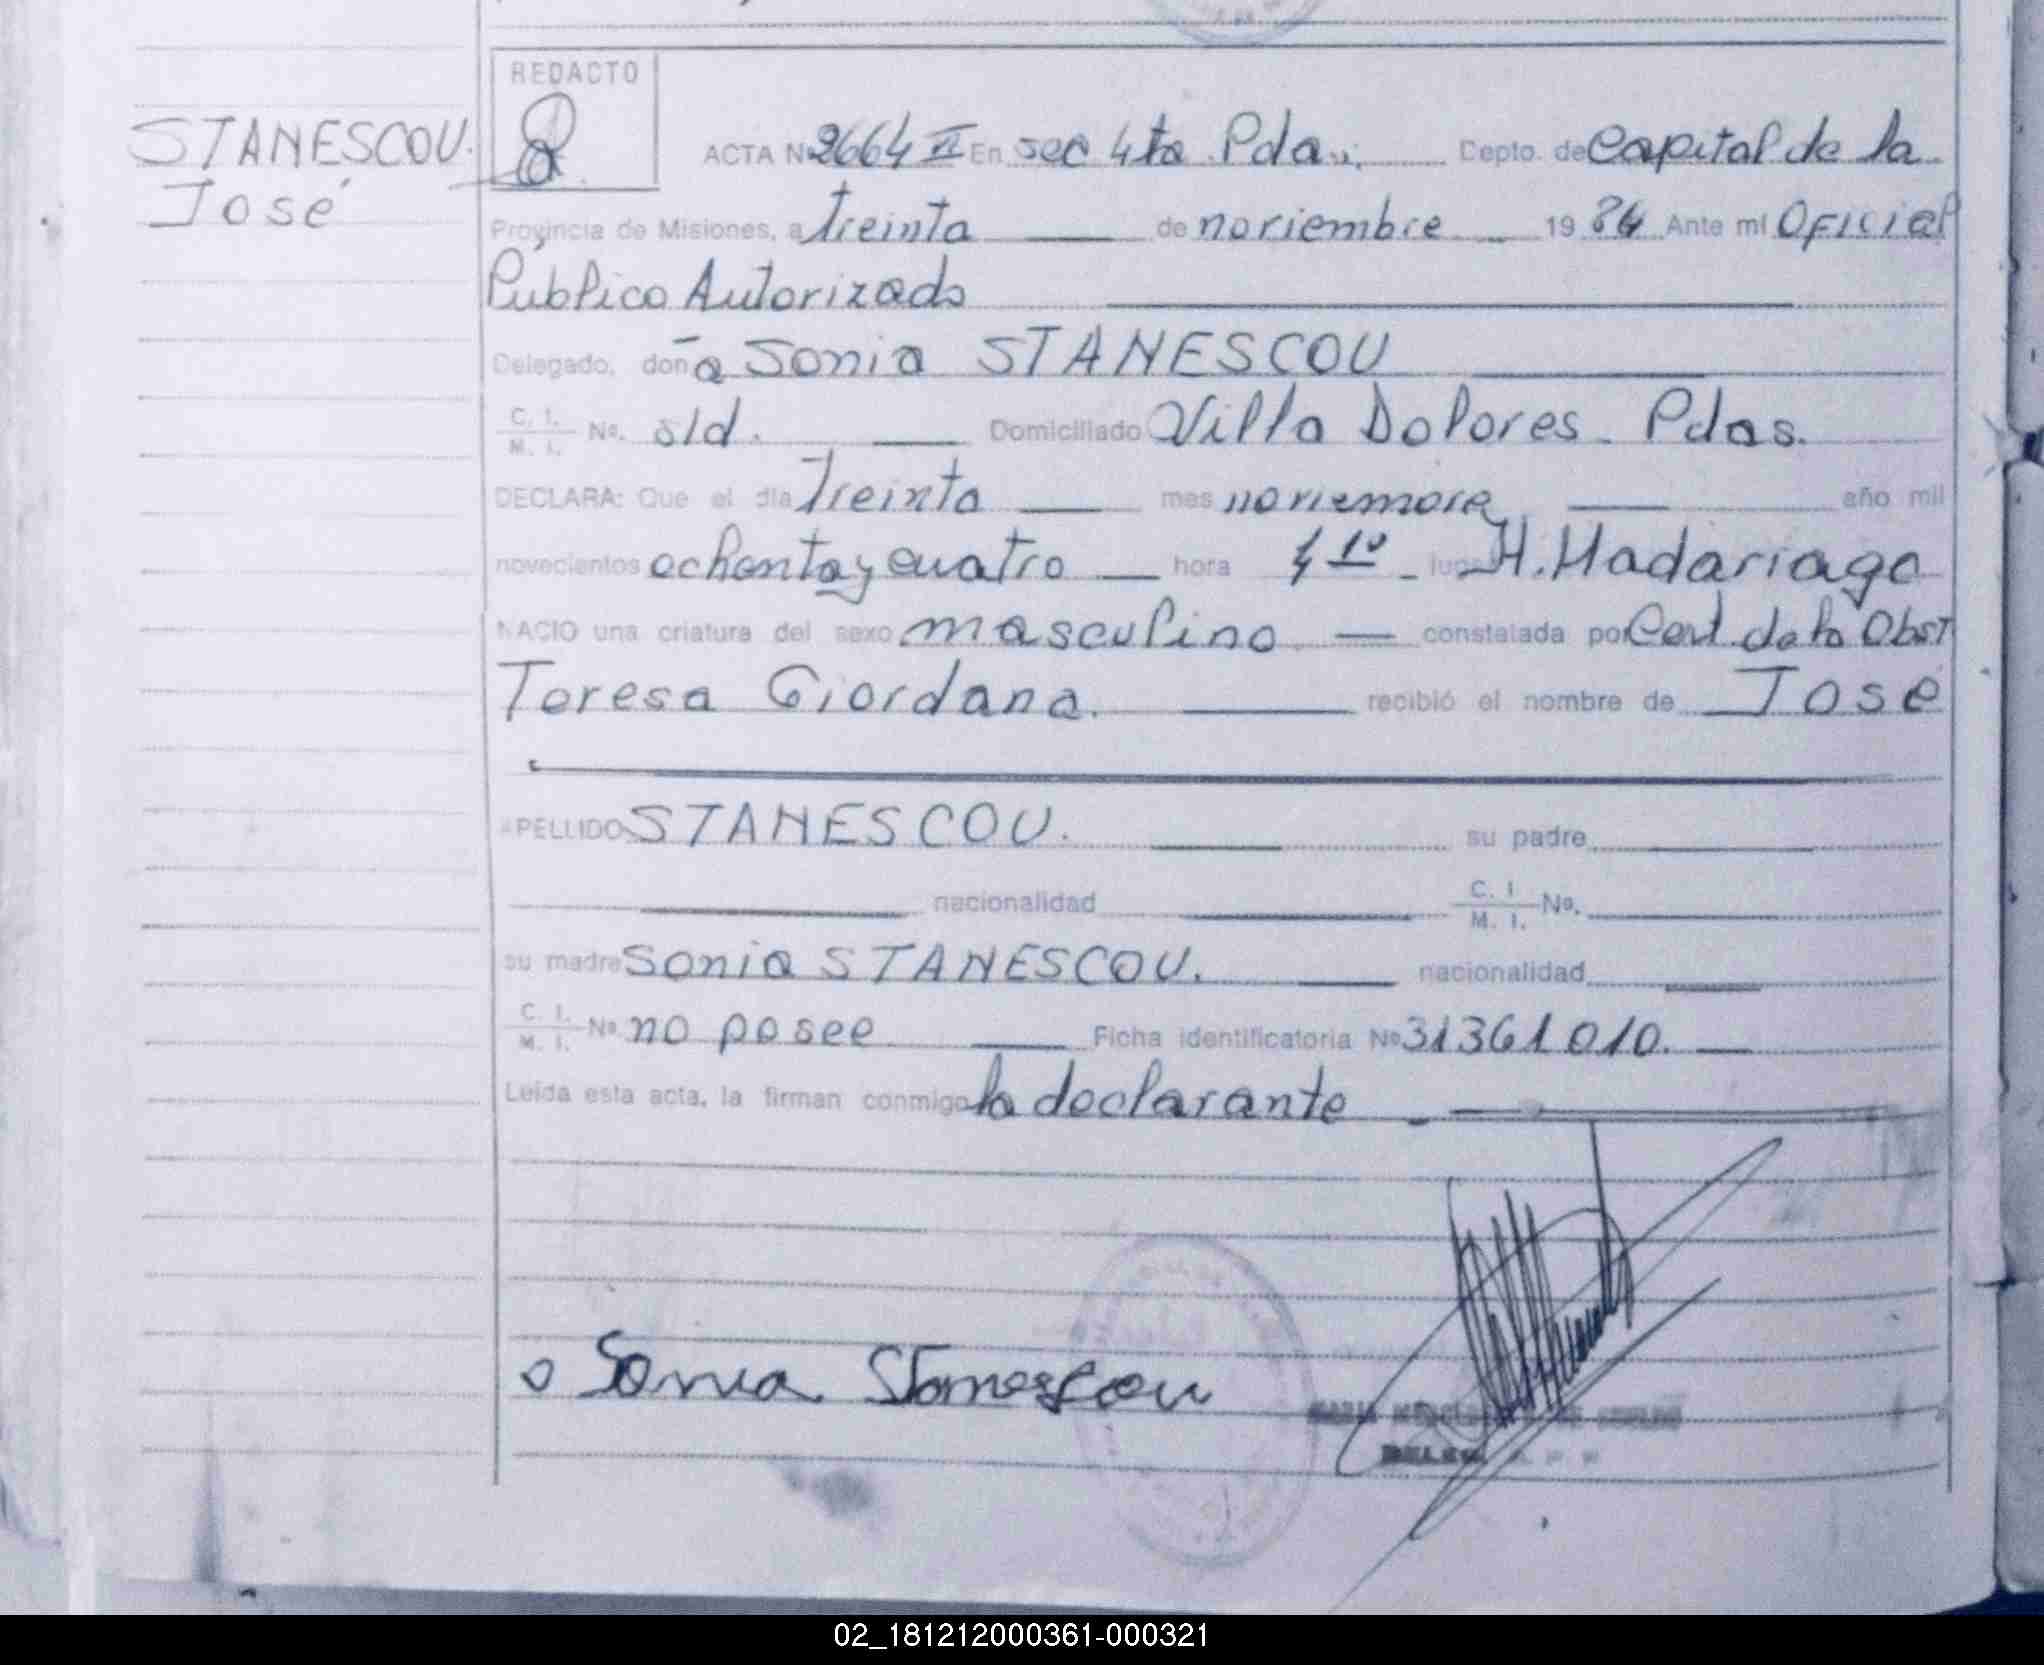 REDACTO
STANESCOU.
José
ACTA Nº 2664 II En sec 4ta Pda. Depto. de Capital de la
Provincia de Misiones, a treinta de noviembre 1984 Ante mí Oficial
Público Autorizado
Delegado, doña Sonia STANESCOU
C. I. M. I. Nº. s/d. Domiciliado Villa Dolores. Pdas.
DECLARA: Que el día treinta mes noviembre año mil
novecientos ochenta y cuatro hora lugar H. Madariaga
NACIO una criatura del sexo masculino constatada por Cert. de la Obst
Teresa Giordana. recibió el nombre de José
APELLIDO STANESCOU. su padre
nacionalidad C. I. M. I. Nº.
su madre Sonia STANESCOU. nacionalidad
C. I. M. I. Nº no posee Ficha identificatoria Nº 31361010.
Leída esta acta, la firman conmigo la declarante
Sonia Stanescou
02_181212000361-000321